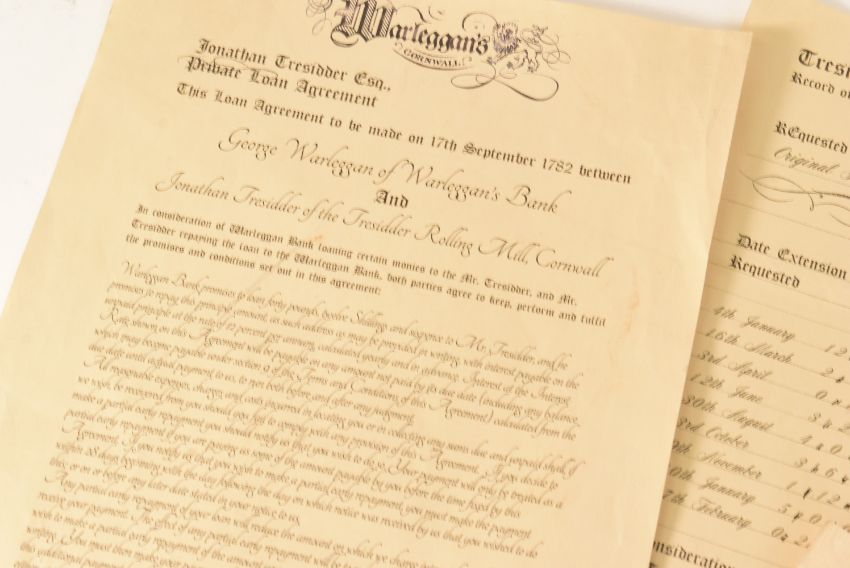 Warleggan's
CORNWALL
Jonathan Tresidder Esq.,
Private Loan Agreement
This Loan Agreement to be made on 17th September 1782 between
George Warleggan of Warleggan's Bank
And
Jonathan Tresidder of the Tresidder Rolling Mill, Cornwall
In consideration of Warleggan Bank loaning certain monies to the Mr. Tresidder, and Mr.
Tresidder repaying the loan to the Warleggan Bank, both parties agree to keep, perform and fulfil
the promises and conditions set out in this agreement:
Warleggan Bank promises to loan forty pounds, twelve Shillings and sixpence to Mr Tresidder, and he
promises to repay this principle amount, as such address as may be provided in writing, with interest payable on the
unpaid principle at the rate of 12 percent per annum, calculated yearly and in advance. Interest at the Interest
Rate shown on this Agreement will be payable on any amount not paid by its due date (including any balance
which may become payable under section 9 of the Terms and Conditions of this Agreement) calculated from the
due date until actual payment to us, to run both before and after any judgment.
All reasonable expenses, charges and costs incurred in locating you or in collecting any sums due and unpaid shall if
we wish be recovered from you should you fail to comply with any provision of this Agreement. If you decide to
make a partial early repayment you should notify us that you wish to do so. Your payment will only be treated as a
partial early repayment if you are paying us some of the amount payable by you before the time fixed by this
Agreement. If you notify us that you wish to make a partial early repayment, you must make the payment
within 28 days beginning with the day following the day on which notice was received by us that you wished to do
this, or on or before any later date stated in your notice to us.
Any partial early repayment of your loan will reduce the amount on which we charge
receive your payment. The effect of any partial early repayment will be
wish to make a partial early repayment of the amount
writing. You must then make your
this additional payment
Record
REquested
Original
Date Extension
Requested
4th January
16th March
3rd April
12th June
30th August
3rd October
November
January
February